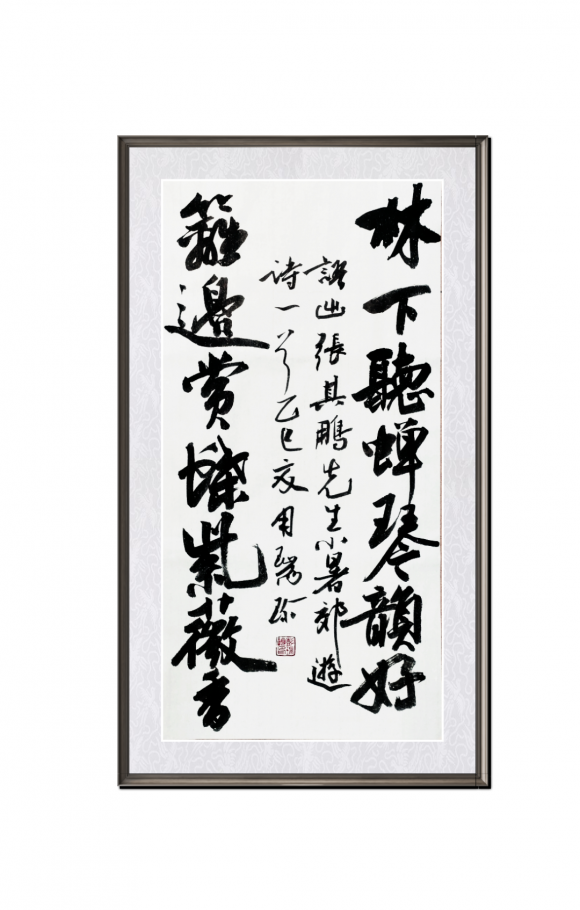 林下聽蝉琴韻好
籬邊賞蝶紫薇香
語出張其鵬先生小暑郊遊
诗一首乙巳夏周瑞珍